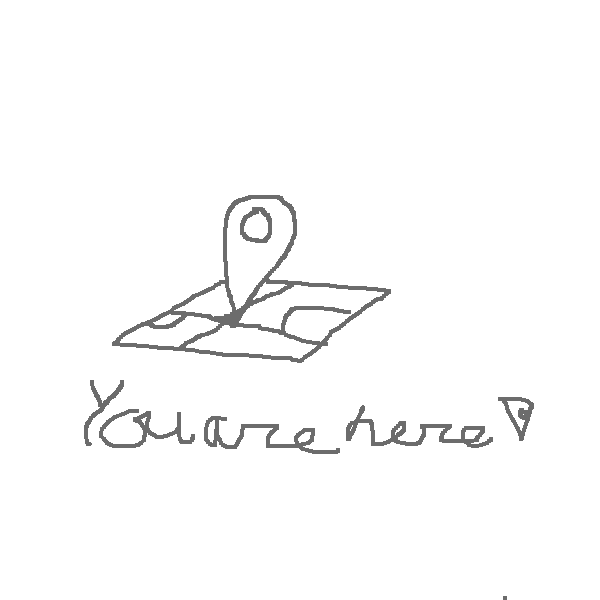 You are here